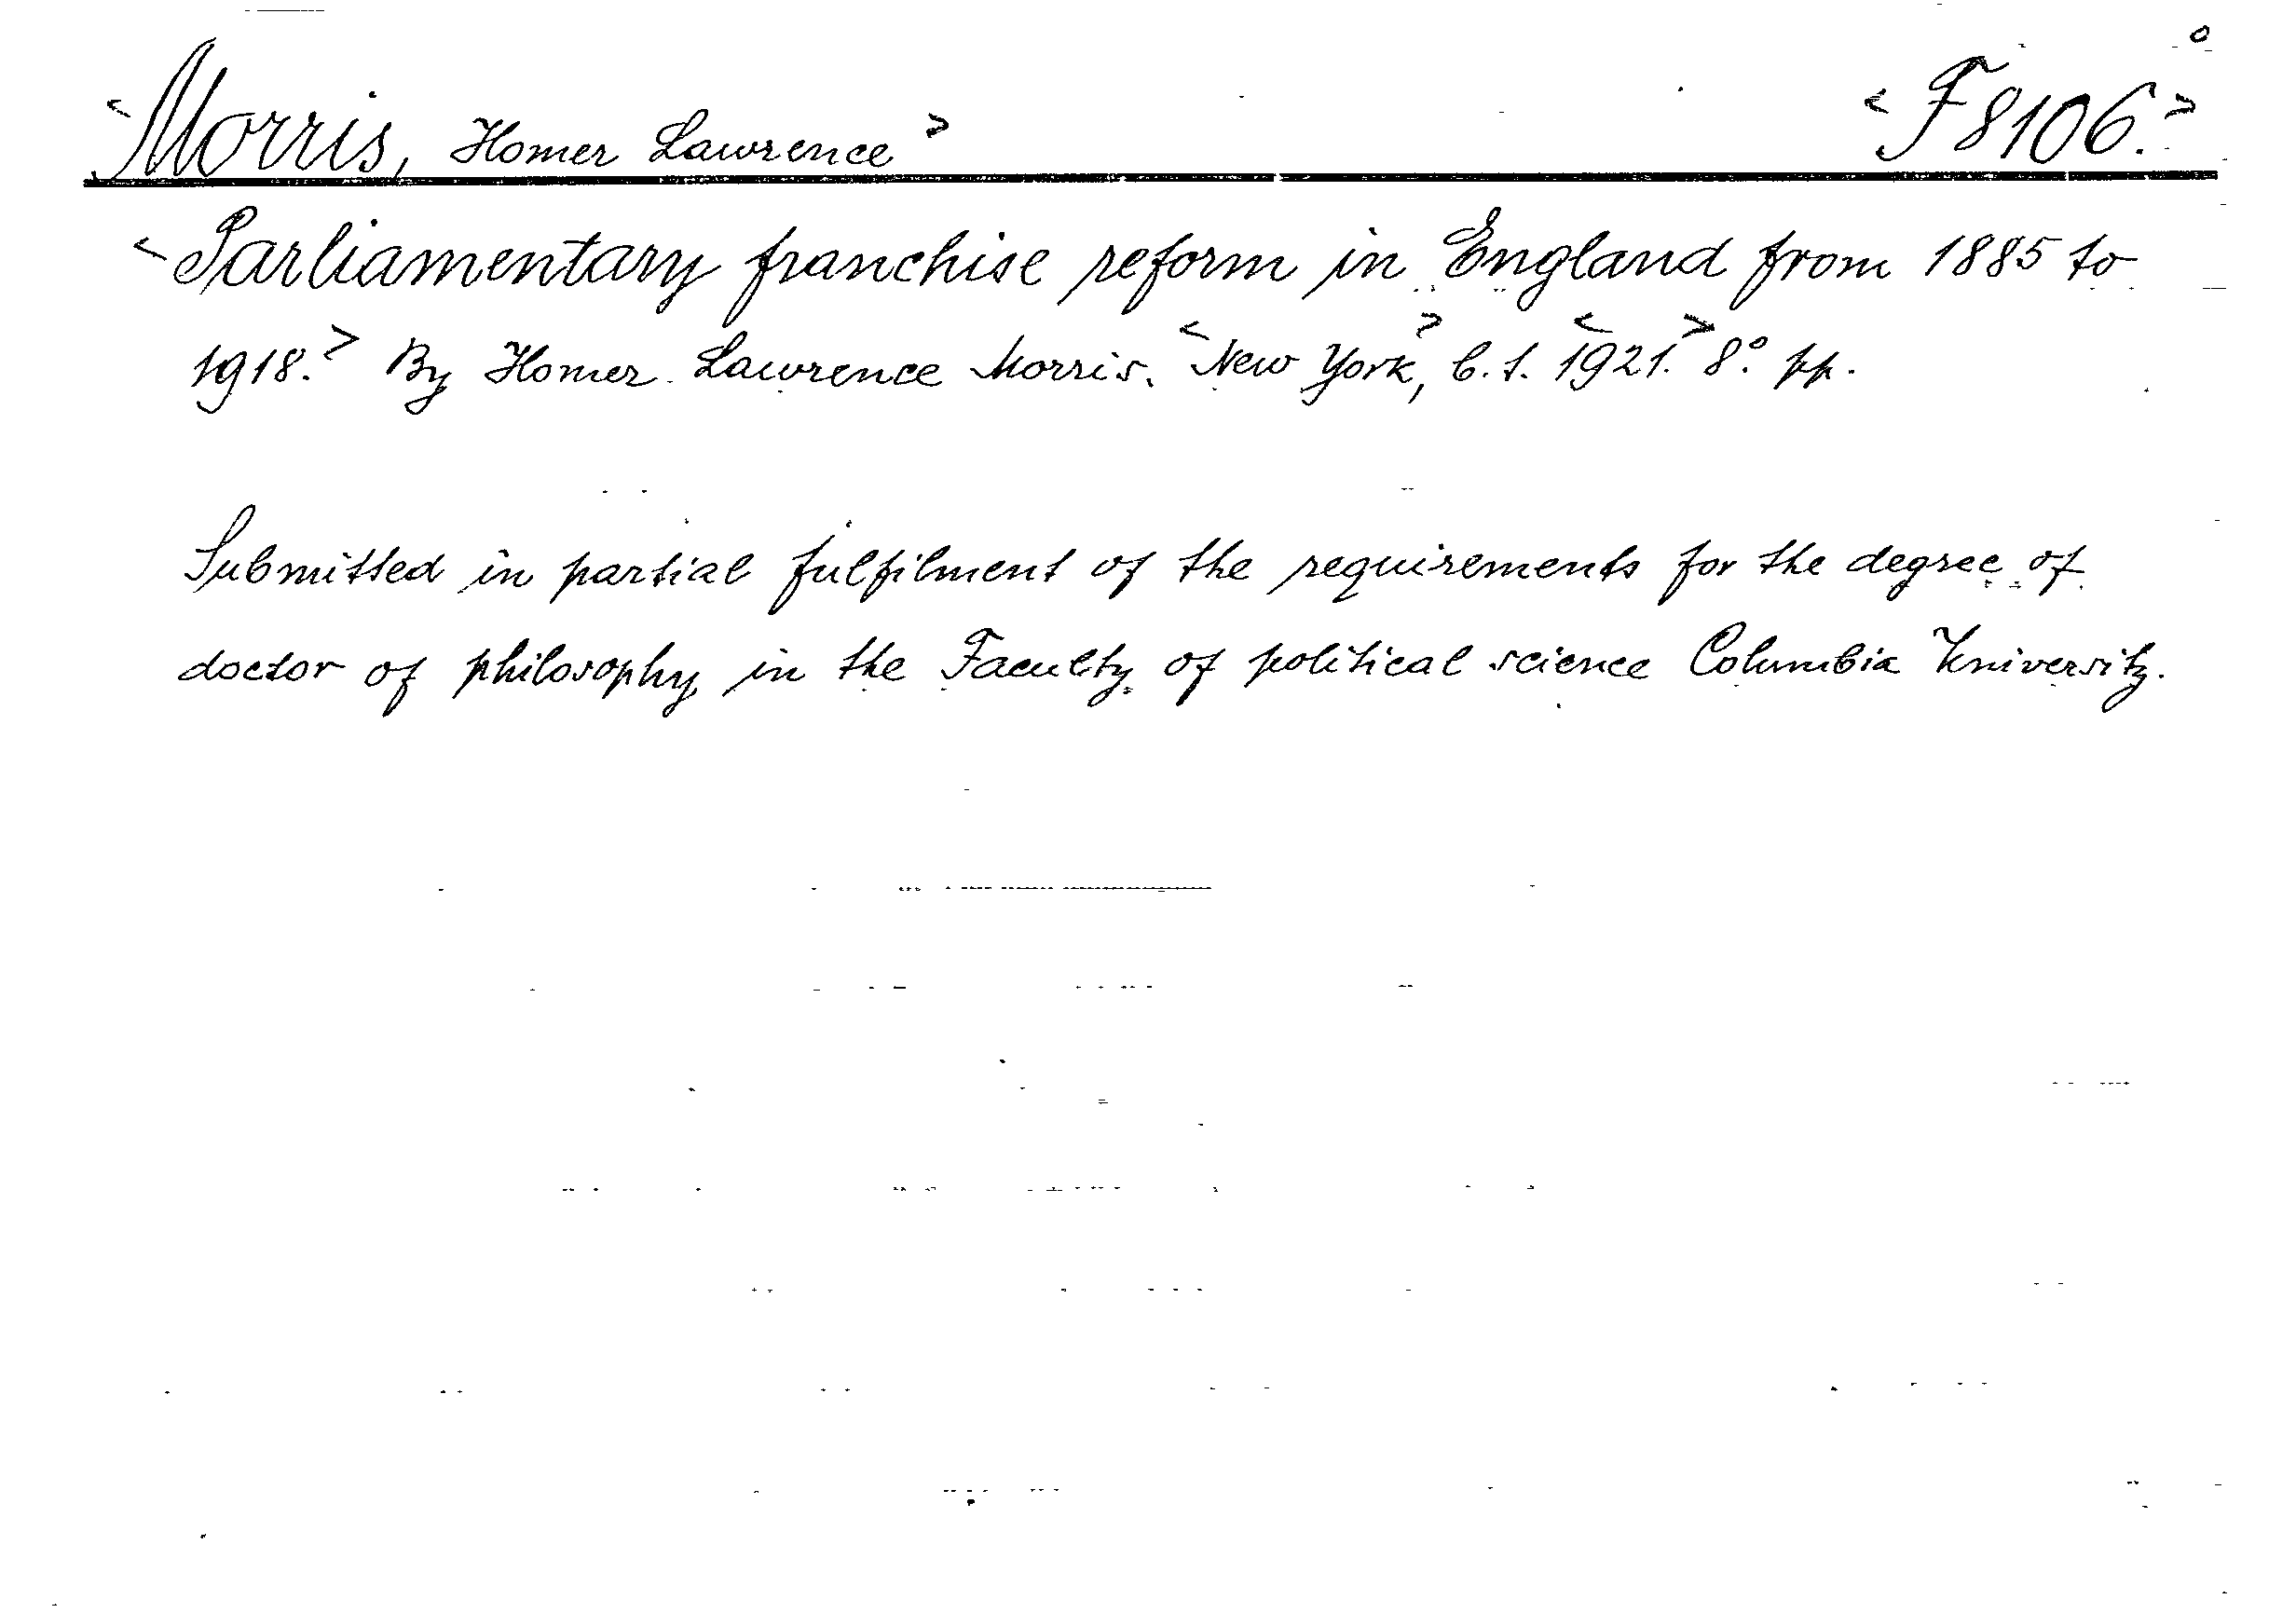 <Morris, Homer Lawrence> <F8106.>
<Parliamentary franchise reform in England from 1885 to
1918.> By Homer Lawrence Morris. <New York>, <1921.> 8° pp.
Submitted in partial fulfilment of the requirements for the degree of
doctor of philosophy in the Faculty of political science Columbia University.